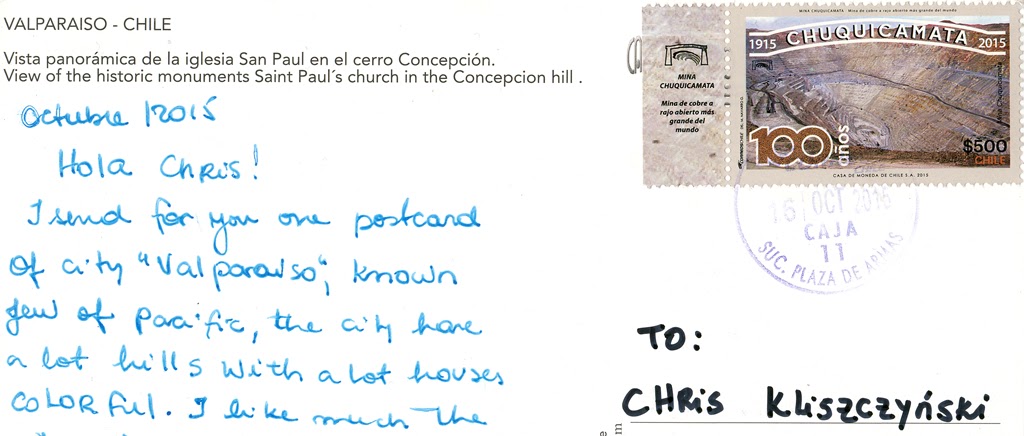 VALPARAISO - CHILE
Vista panorámica de la iglesia San Paul en el cerro Concepción.
View of the historic monuments Saint Paul´s church in the Concepcion hill .
Octubre /2015
Hola Chris!
I send for you one postcard
of city "Valparaiso", known
Jew of pacific, the city have
a lot hills with a lot houses
COLORful. I like much the
MINA CHUQUICAMATA
MINA
CHUQUICAMATA
Mina de cobre a
rajo abierto más
grande del
mundo
1915 CHUQUICAMATA 2015
100 años
$500
CHILE
CASA DE MONEDA DE CHILE S.A. 2015
16 OCT
CAJA
11
SUC. PLAZA DE ARMAS
TO:
CHRis Kliszczyński